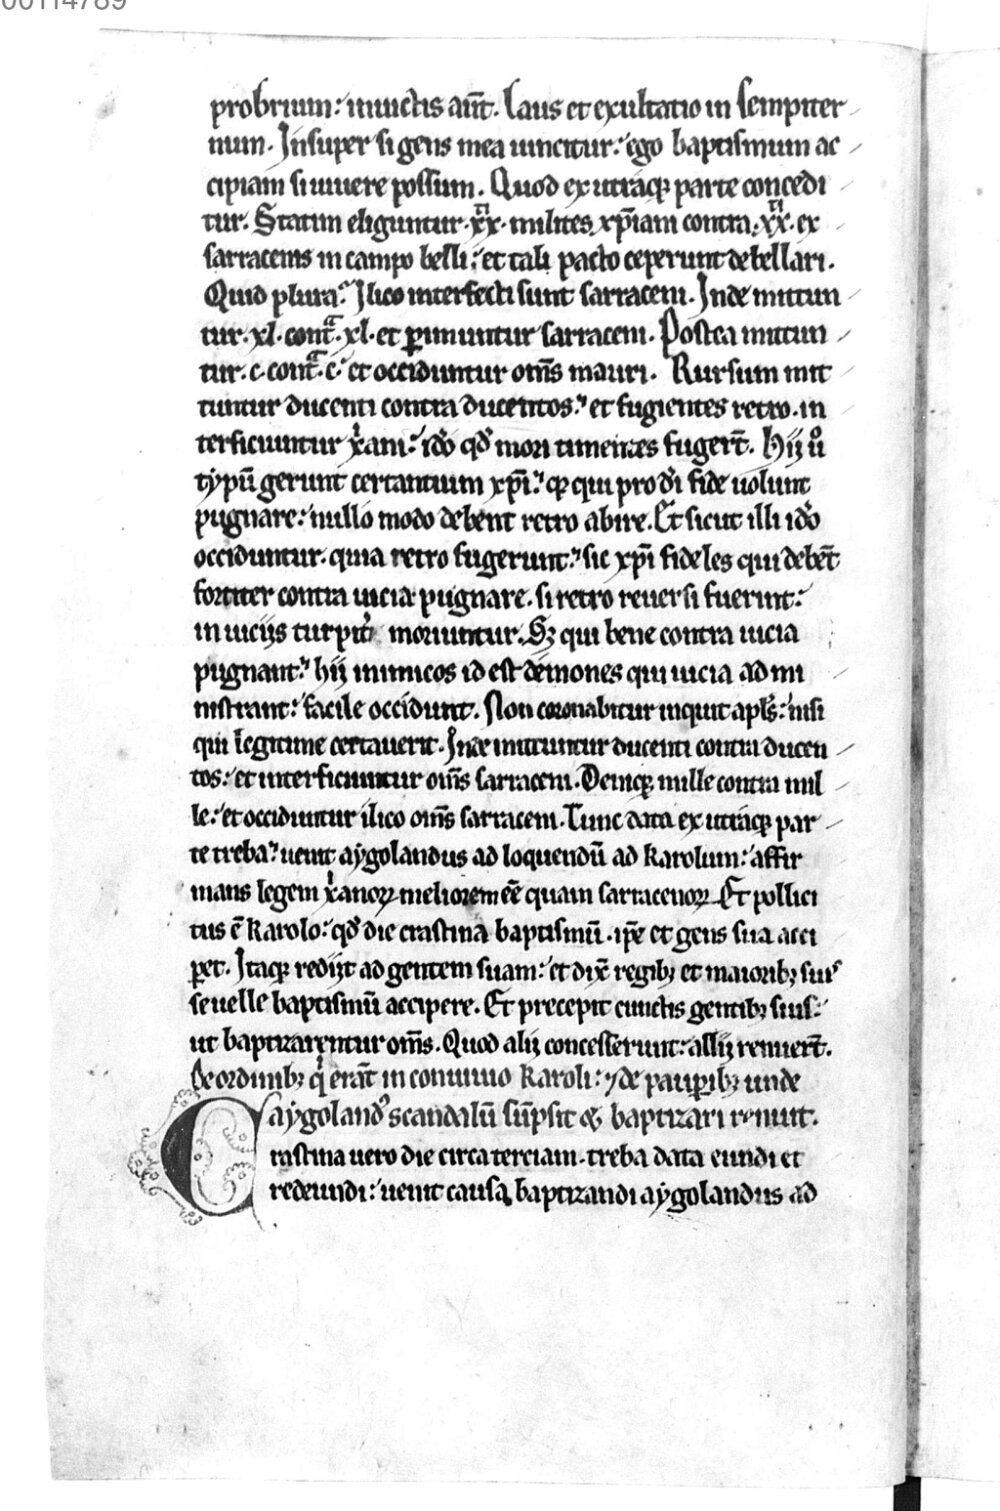 00114789
probrium: inuictis aut̄. Laus et exultatio in sempiter
num. Insuper si gens mea uincitur: ego baptismum ac
cipiam si uiuere possum. Quod ex utraqꝫ parte concedi
tur. Statim eliguntur .xxᵗⁱ. milites xp̄iani contra .xxᵗⁱ. ex
sarracenis in campo belli: et tali pacto ceperunt debellari.
Quid plura? Ilico interfecti sunt sarraceni. Inde mittun
tur .xl. contᵃ .xl. et ꝑimuntur sarraceni. Postea mittun
tur .c. contᵃ .c. et occiduntur om̄s mauri. Rursum mit
tuntur ducenti contra ducentos: et fugientes retro. in
terficiuntur xꝰani: id̄o qd̄ mori timentes fuger̄t. Hij uͦ
typū gerunt certantium xp̄i: qꝫ qui pro d̄i fide uolunt
pugnare: nullo modo debent retro abire. Et sicut illi id̄o
occiduntur. quia retro fugerunt: sic xp̄i fideles qui debēt
fortiter contra uicia pugnare. si retro reuersi fuerint:
in uiciis turpit̄ moriuntur. Sꝫ qui bene contra uicia
pugnant: hij inimicos id est demones qui uicia ad mi
nistrant: facile occidunt. Non coronabitur inquit apl̄s: nisi
qui legitime certauerit. Inde mittuntur ducenti contra ducen
tos: et interficiuntur om̄s sarraceni. Deniqꝫ mille contra mil
le: et occiduntur ilico om̄s sarraceni. Tunc data ex utraqꝫ par
te treba: uenit aygolandus ad loquendū ad Karolum: affir
mans legem xꝰanoꝝ meliorem eē quam sarracenoꝝ. Et pollici
tus ē Karolo: qd̄ die crastina baptismū. ip̄e et gens sua acci
ꝑet. Itaqꝫ redijt ad gentem suam: et dix̄ regibꝫ et maioribꝫ suis
se uelle baptismū accipere. Et precepit cunctis gentibꝫ suis:
ut baptizarentur om̄s. Quod alij concesserunt: allij renuer̄t.
De ordinibꝫ qͥ erāt in conuiuio Karoli: ⁊ de pauꝑibꝫ unde
aygolandꝰ scandalū sūpsit & baptizari renuit.
Crastina uero die circa terciam. treba data eundi et
redeundi: uenit causa baptizandi aygolandus ad